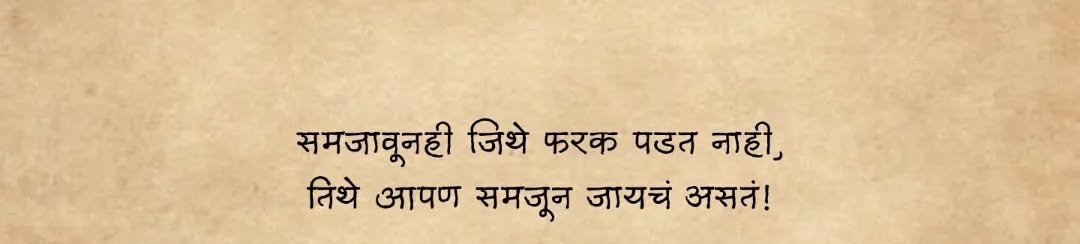 समजावूनही जिथे फरक पडत नाही,
तिथे आपण समजून जायचं असतं!